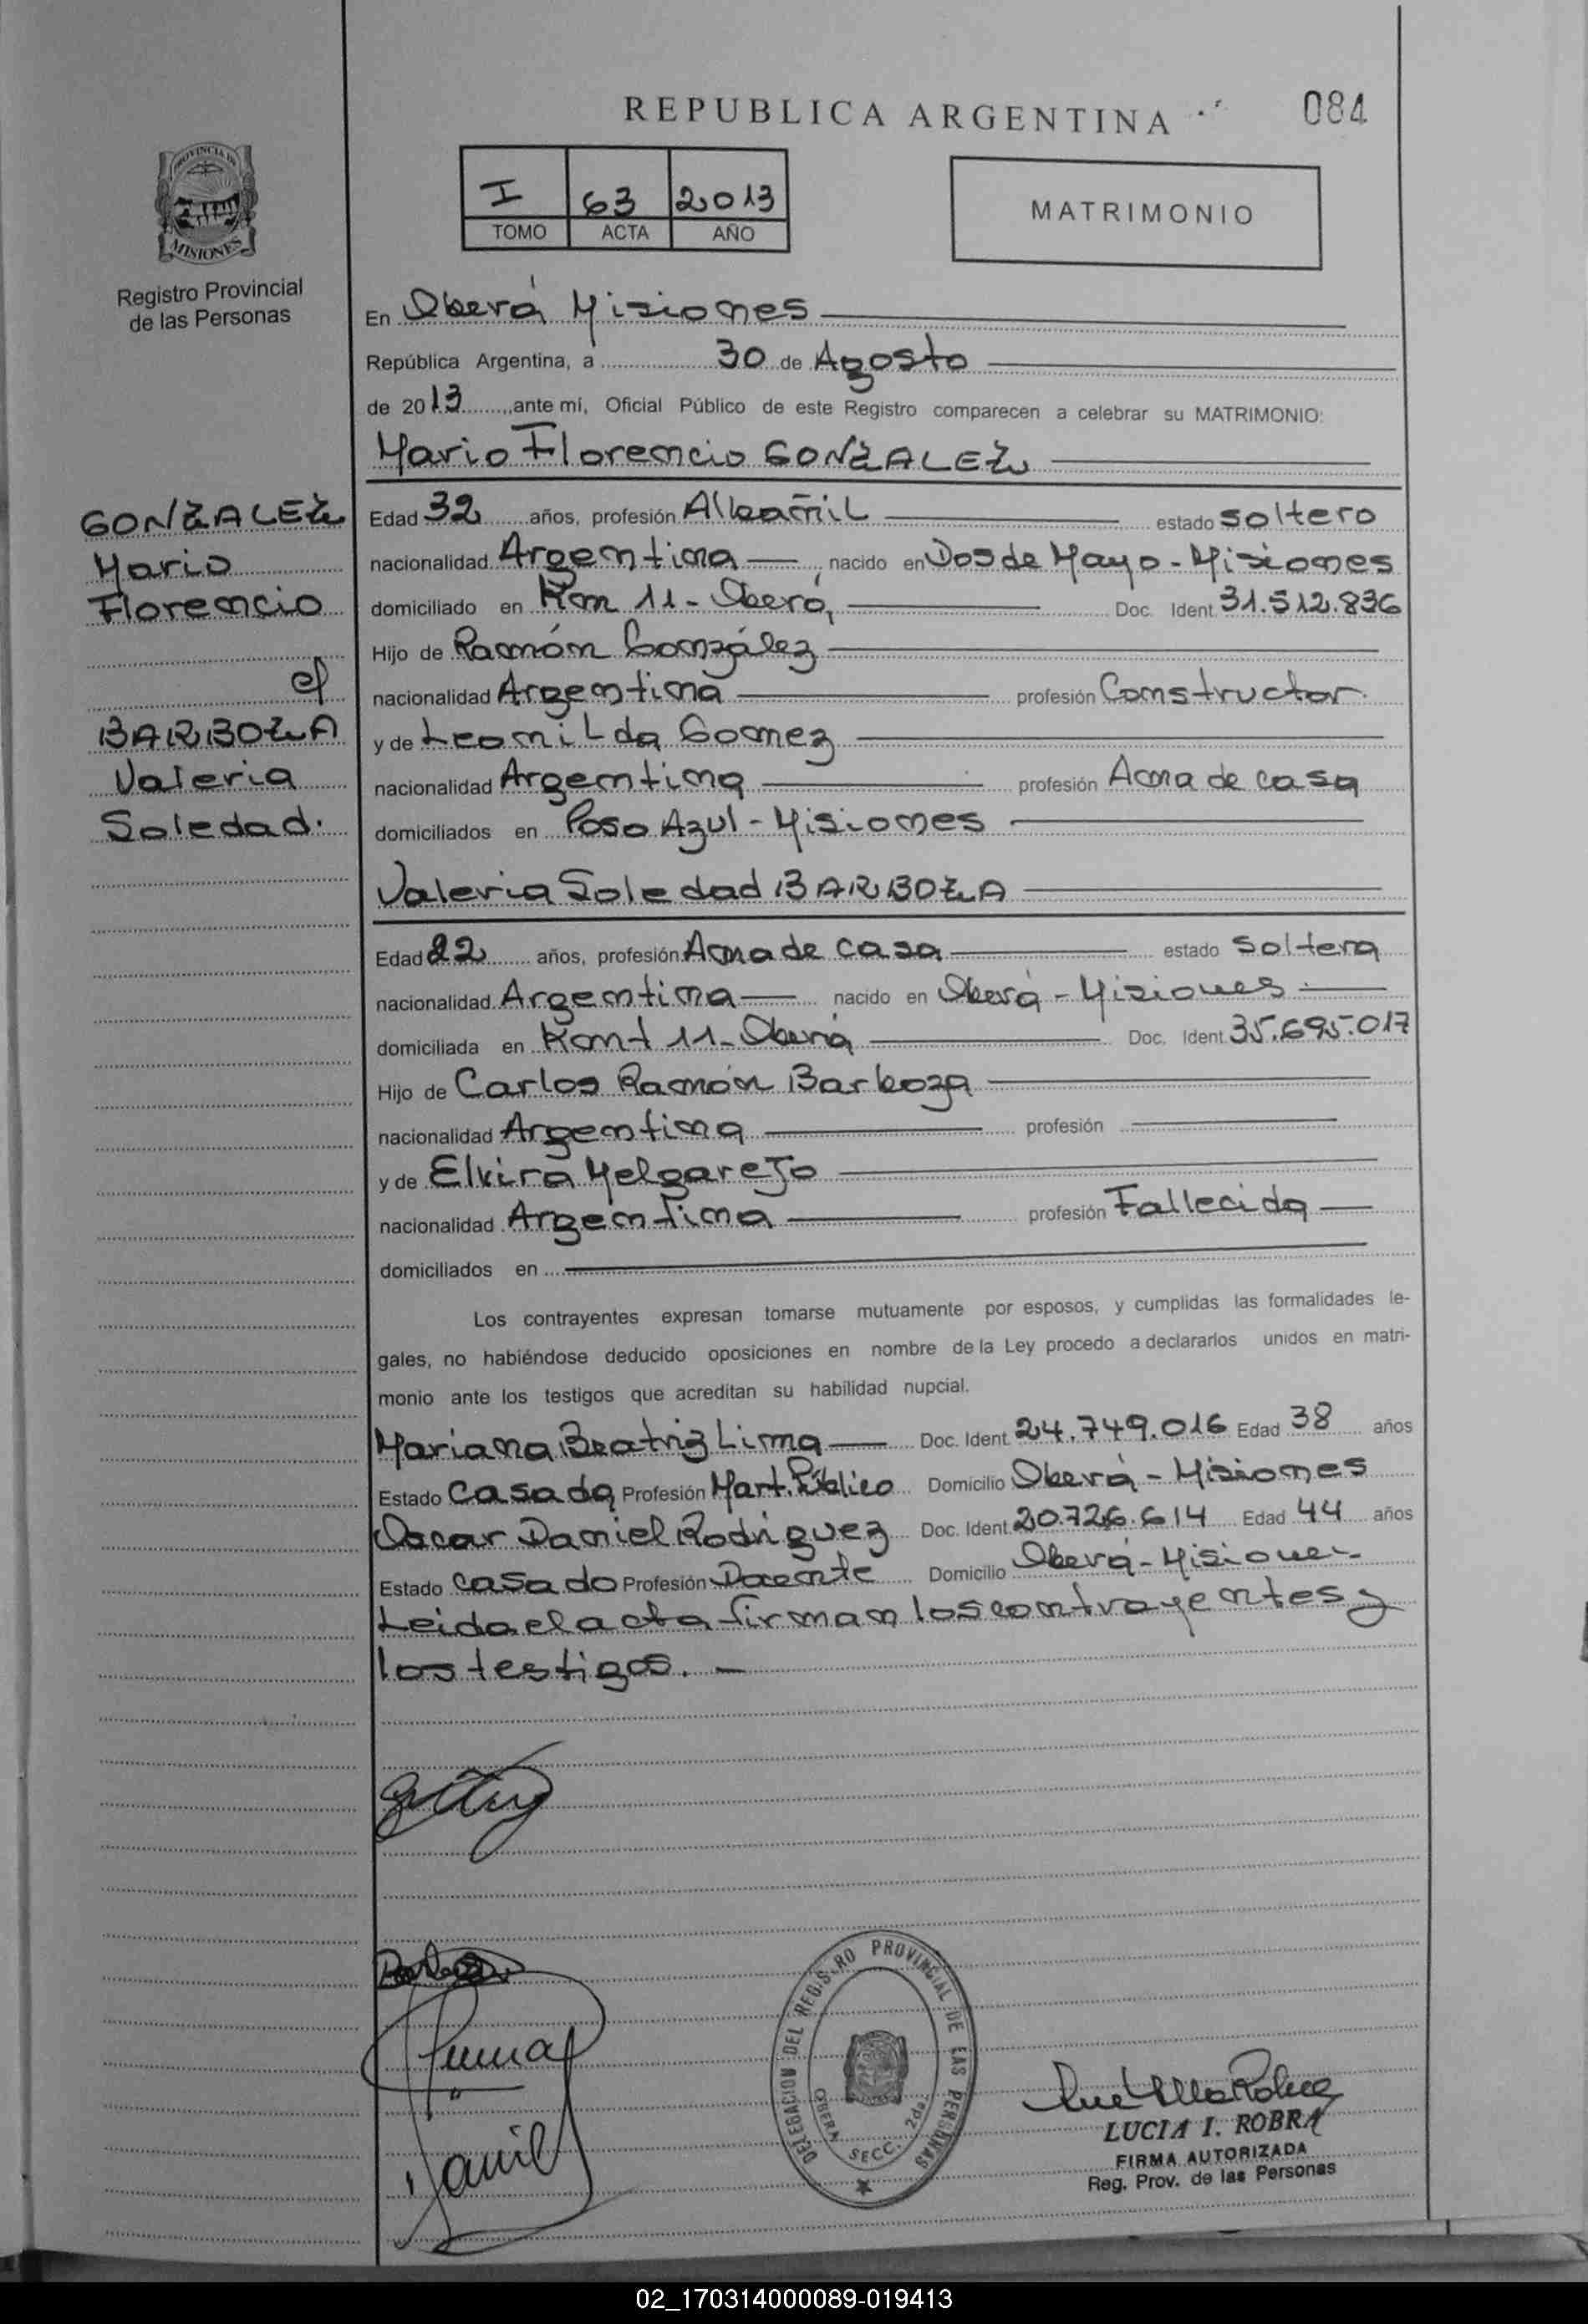 REPUBLICA ARGENTINA
084
I 63 2013
TOMO ACTA AÑO
MATRIMONIO
PROVINCIA DE
MISIONES
Registro Provincial
de las Personas
En Oberá Misiones
República Argentina, a 30 de Agosto
de 2013 ante mí, Oficial Público de este Registro comparecen a celebrar su MATRIMONIO:
Mario Florencio GONZALEZ
GONZALEZ
Mario
Florencio
c/
BARBOZA
Valeria
Soledad.
Edad 32 años, profesión Albañil estado soltero
nacionalidad Argentina, nacido en Dos de Mayo - Misiones
domiciliado en Km 11 - Oberá, Doc. Ident. 31.512.836
Hijo de Ramón González
nacionalidad Argentina profesión Constructor
y de Leonilda Gomez
nacionalidad Argentina profesión Ama de casa
domiciliados en Poso Azul - Misiones
Valeria Soledad BARBOZA
Edad 22 años, profesión Ama de casa estado soltera
nacionalidad Argentina nacido en Oberá - Misiones
domiciliada en Kmt 11 - Oberá Doc. Ident. 35.695.017
Hijo de Carlos Ramón Barboza
nacionalidad Argentina profesión
y de Elvira Melgarejo
nacionalidad Argentina profesión Fallecida
domiciliados en
Los contrayentes expresan tomarse mutuamente por esposos, y cumplidas las formalidades le-
gales, no habiéndose deducido oposiciones en nombre de la Ley procedo a declararlos unidos en matri-
monio ante los testigos que acreditan su habilidad nupcial.
Mariana Beatriz Lima Doc. Ident. 24.749.016 Edad 38 años
Estado Casada Profesión Mart. Público Domicilio Oberá - Misiones
Oscar Daniel Rodriguez Doc. Ident. 20.726.614 Edad 44 años
Estado casado Profesión Docente Domicilio Oberá - Misiones
Leida el acta firman los contrayentes y
los testigos.
DELEGACION DEL REGISTRO PROVINCIAL DE LAS PERSONAS
OBERA SECC. 2da.
LUCIA I. ROBRA
FIRMA AUTORIZADA
Reg. Prov. de las Personas
02_170314000089-019413